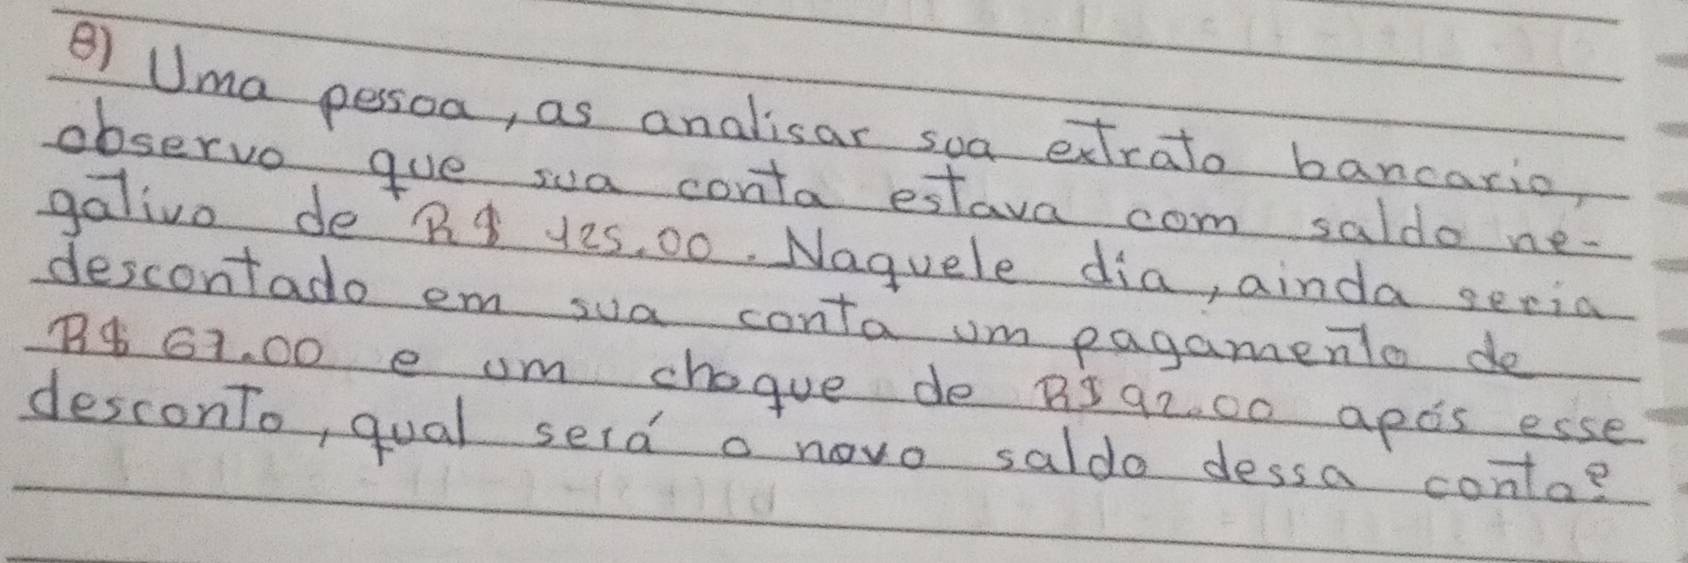 8) Uma pessoa, as analisar sua extrato bancario,
observo que sua conta estava com saldo ne-
gativo de R$ 125,00. Naquele dia, ainda seria
descontado em sua conta um pagamento de
R$ 67.00 e um cheque de R$ 92.00 após esse
desconto, qual será o novo saldo dessa conta?